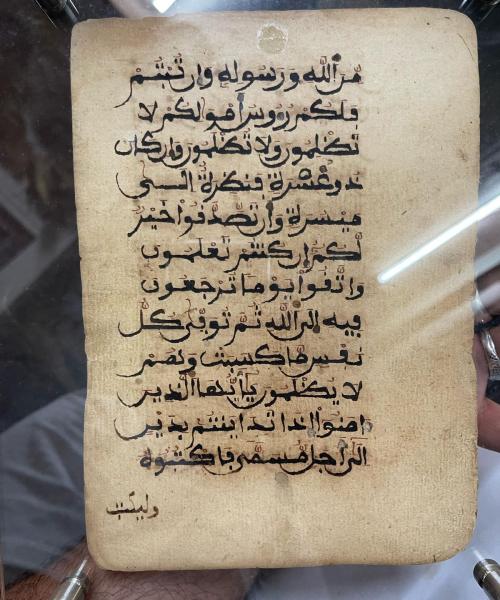 من الله ورسوله وان تبتم
فلكم رءوس أمولكم لا
تظلمون ولا تظلمون وان كان
ذو عسرة فنظرة الى
ميسرة وأن تصدقوا خير
لكم ان كنتم تعلمون
واتقوا يوما ترجعون
فيه الى الله ثم توفى كل
نفس ما كسبت وهم
لا يظلمون يأيها الذين
امنوا اذا تداينتم بدين
الى أجل مسمى فاكتبوه
وليكتب